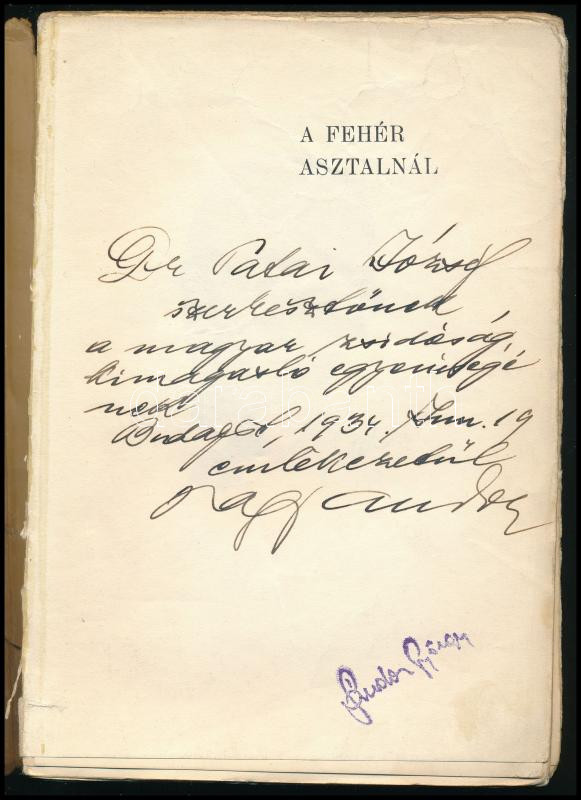 A FEHÉR
ASZTALNÁL
Dr Patai József
szerkesztőnek,
a magyar zsidóság
kimagasló egyeniségé
nek
Budapest, 1934. Jun. 19
emlékezetül
Nagy Andor
Sándor György